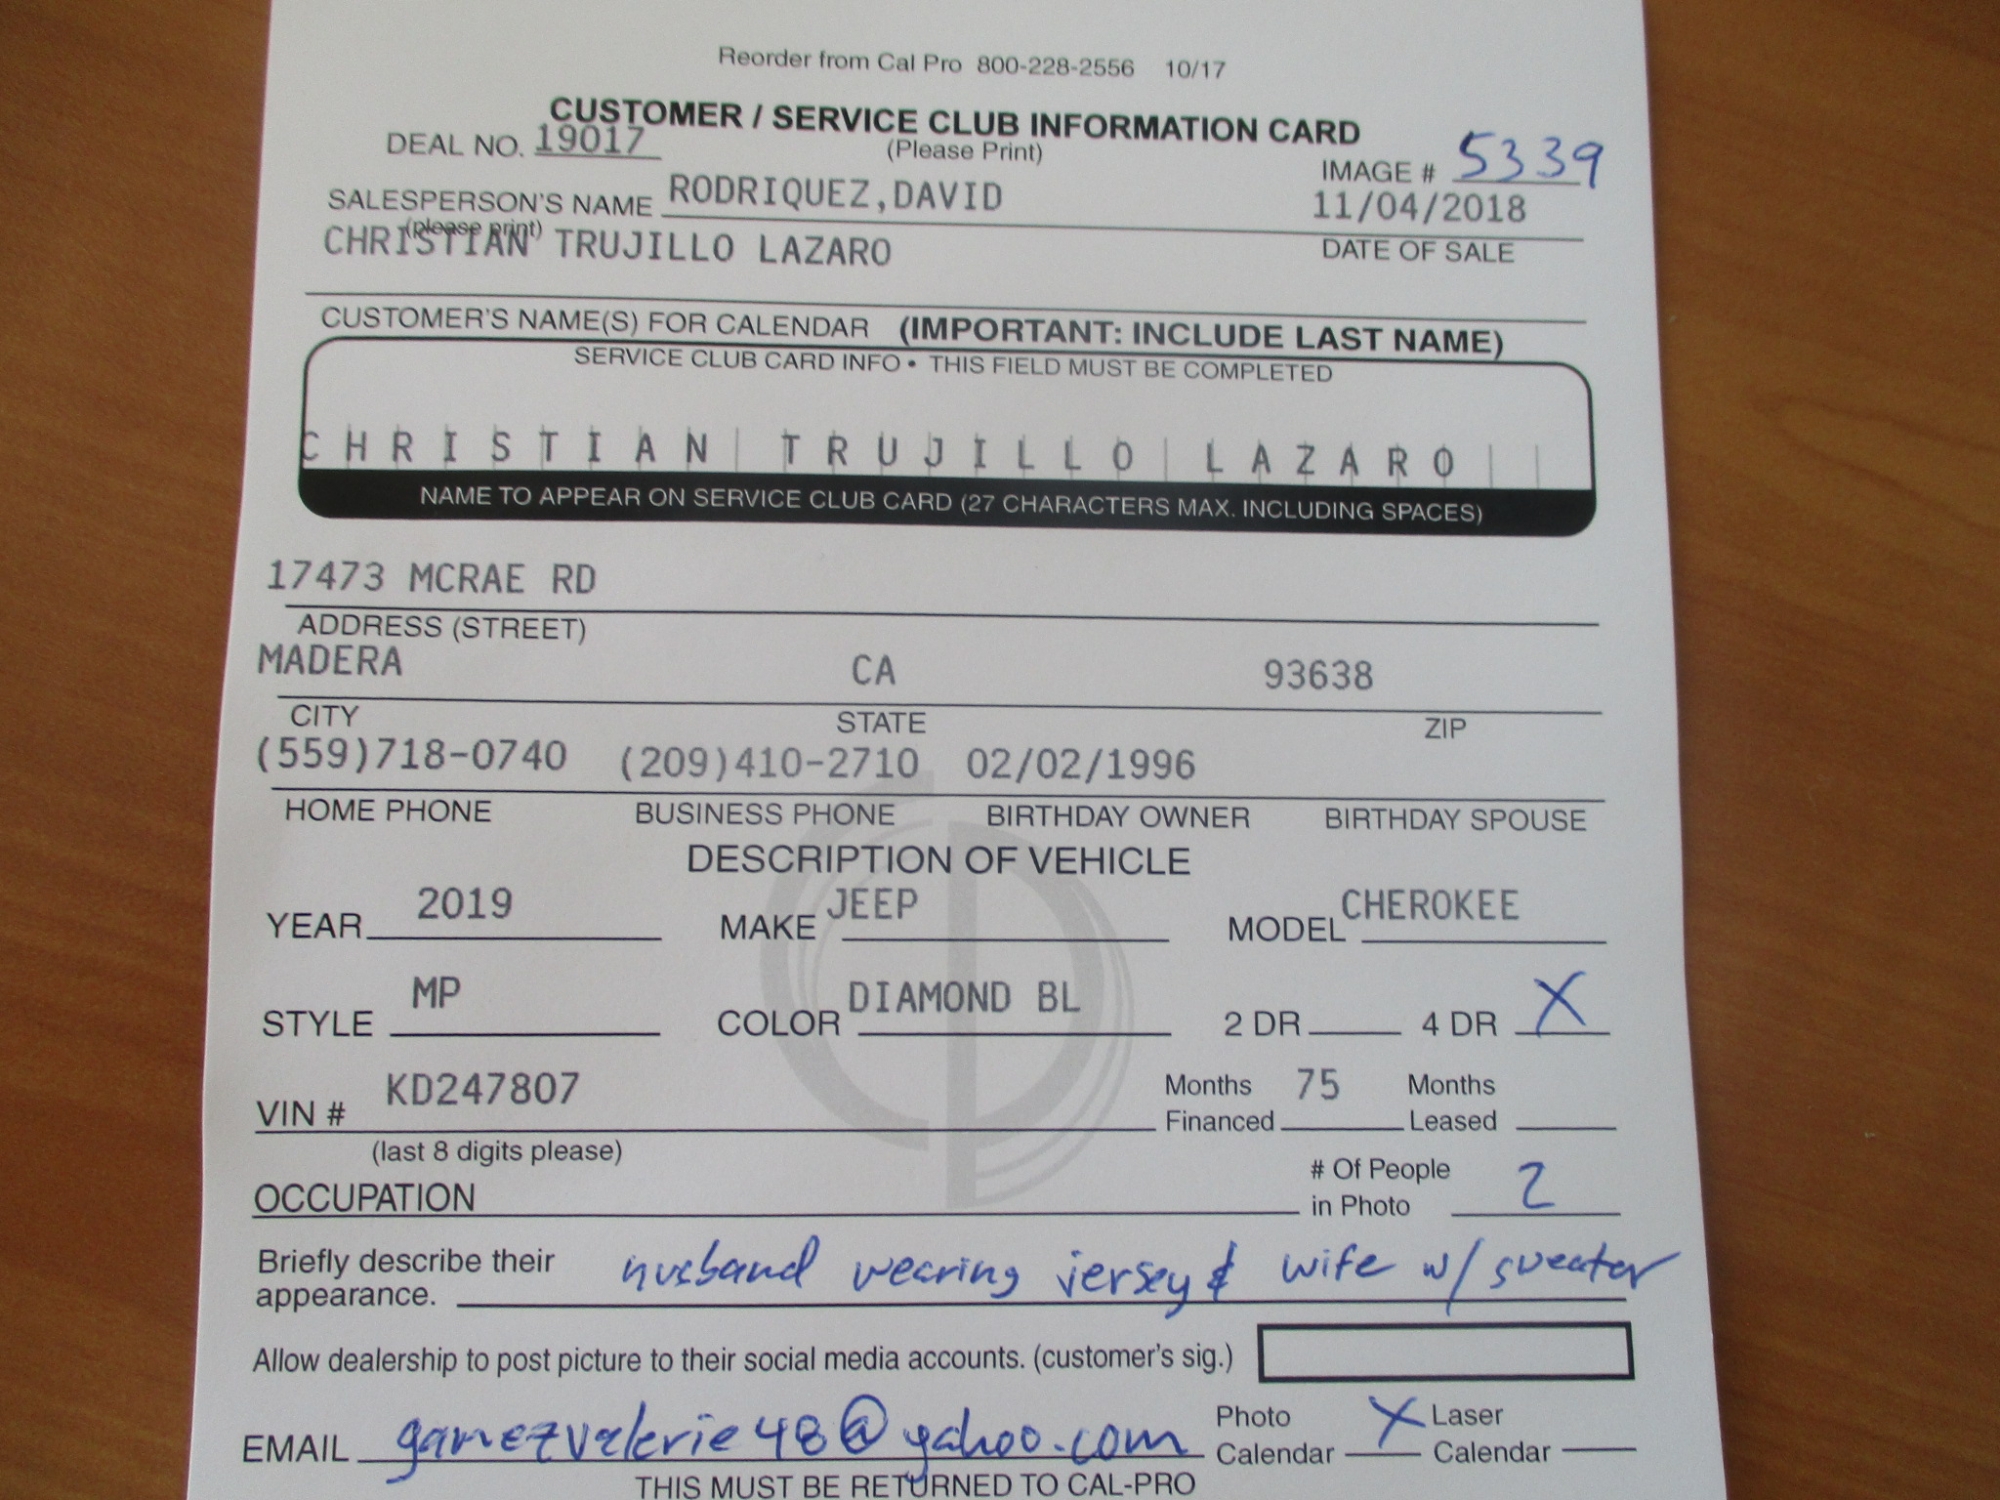 Reorder from Cal Pro 800-228-2556 10/17
CUSTOMER / SERVICE CLUB INFORMATION CARD
DEAL NO. 19017 (Please Print) IMAGE # 5339
SALESPERSON'S NAME RODRIQUEZ,DAVID 11/04/2018
(please print) DATE OF SALE
CHRISTIAN TRUJILLO LAZARO
CUSTOMER'S NAME(S) FOR CALENDAR (IMPORTANT: INCLUDE LAST NAME)
SERVICE CLUB CARD INFO • THIS FIELD MUST BE COMPLETED
CHRISTIAN TRUJILLO LAZARO
NAME TO APPEAR ON SERVICE CLUB CARD (27 CHARACTERS MAX. INCLUDING SPACES)
17473 MCRAE RD
ADDRESS (STREET)
MADERA CA 93638
CITY STATE ZIP
(559)718-0740 (209)410-2710 02/02/1996
HOME PHONE BUSINESS PHONE BIRTHDAY OWNER BIRTHDAY SPOUSE
DESCRIPTION OF VEHICLE
YEAR 2019 MAKE JEEP MODEL CHEROKEE
STYLE MP COLOR DIAMOND BL 2 DR 4 DR X
VIN # KD247807 Months Financed 75 Months Leased
(last 8 digits please)
OCCUPATION # Of People in Photo 2
Briefly describe their appearance. husband wearing jersey & wife w/ sweater
Allow dealership to post picture to their social media accounts. (customer's sig.)
EMAIL ganezvalerie48@yahoo.com Photo Calendar X Laser Calendar
THIS MUST BE RETURNED TO CAL-PRO